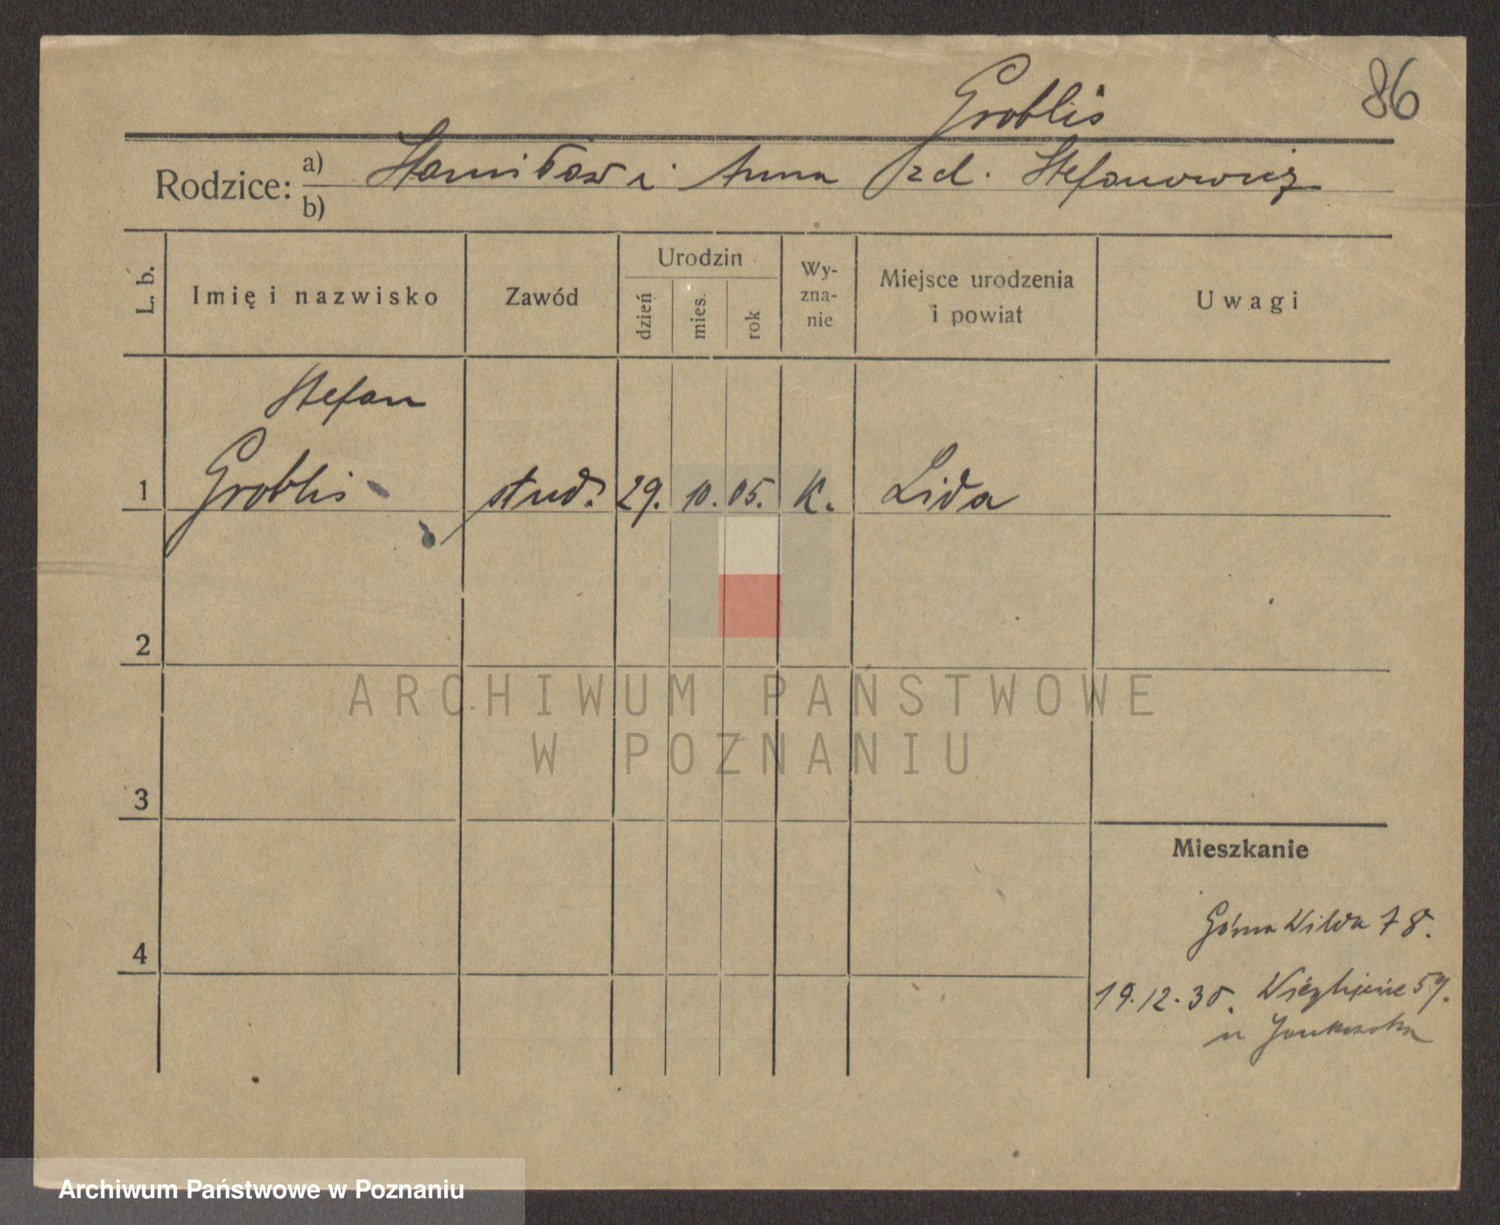 Groblis
86
Rodzice: a) Stanisław i Anna zd. Stefanowicz
b)
L. b.
Imię i nazwisko
Zawód
Urodzin
dzień
mies.
rok
Wy-
zna-
nie
Miejsce urodzenia
i powiat
Uwagi
Stefan
1 Groblis stud. 29. 10. 05. K. Lida
2
ARCHIWUM PAŃSTWOWE
W POZNANIU
3
Mieszkanie
Górna Wilda 78.
4
19.12.30.
u
Archiwum Państwowe w Poznaniu